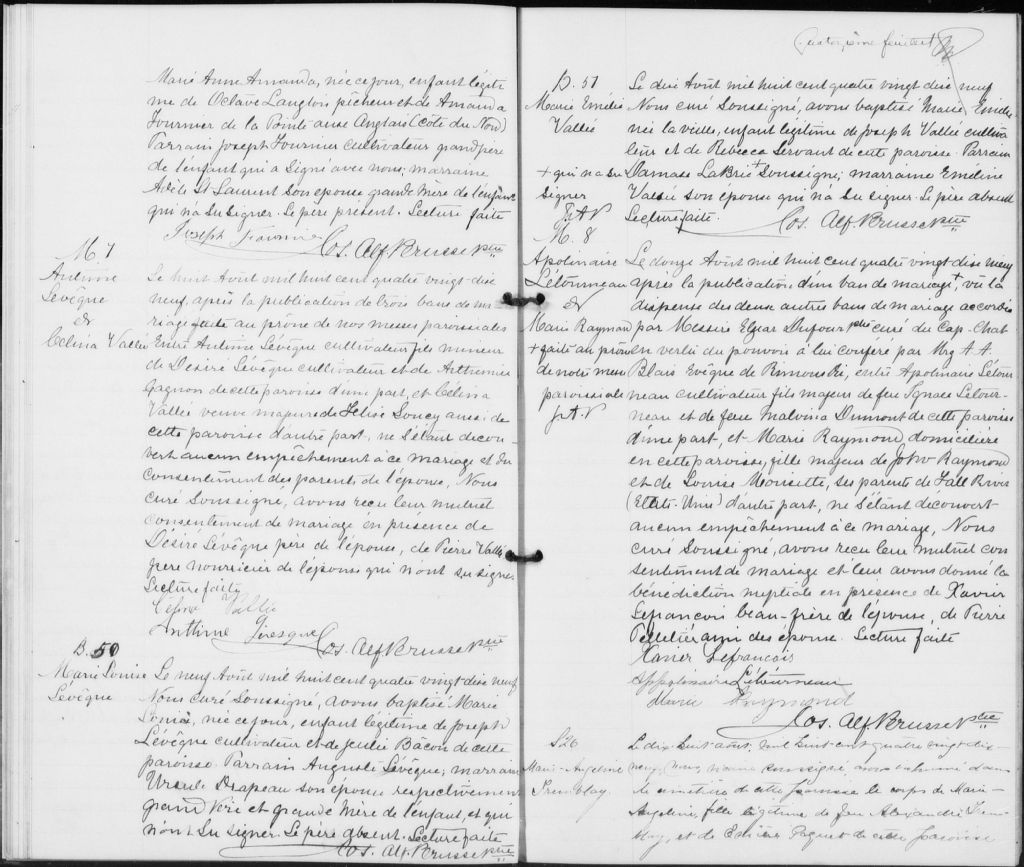 Marie Anne Amanda, née ce jour, enfant légiti
me de Octave Langlois pêcheur et de Amanda
Fournier de la Pointe aux Anglais (côté du Nord)
Parrain Joseph Fournier cultivateur grand père
de l'enfant qui a signé avec nous; marraine
Adèle St Laurent son épouse grande mère de l'enfant
qui n'a su signer. Le père présent. Lecture faite
Joseph Fournier Jos. Alf. Brusse Ptre
M. 7
Antoine
Lévêque
&
Célina Vallée
Le huit Août mil huit cent quatre vingt-dix
neuf, après la publication de trois bans de ma
riage faite au prône de nos messes paroissiales
Entre Antoine Lévêque cultivateur fils mineur
de Désiré Lévêque cultivateur et de Arthémise
Gagnon de cette paroisse d'une part, et Célina
Vallée veuve majeure de Soucy aussi de
cette paroisse d'autre part, ne s'étant décou-
vert aucun empêchement à ce mariage et du
consentement des parents de l'époux, Nous
curé Soussigné, avons reçu leur mutuel
consentement de mariage en présence de
Désiré Lévêque père de l'épouse, de Pierre Vallée
père nourricier de l'épouse qui n'ont su signer.
Lecture faite
Vallée
Anthime
Jos. Alf. Brusse Ptre
B. 50
Marie Louise
Lévêque
Le neuf Août mil huit cent quatre vingt dix neuf
Nous curé Soussigné, avons baptisé Marie
Louise, née ce jour, enfant légitime de Joseph
Lévêque cultivateur et de Julie Bacon de cette
paroisse. Parrain Auguste Lévêque; marraine
Ursule Drapeau son épouse respectivement
grand Père et grande Mère de l'enfant, et qui
n'ont su signer. Le père absent. Lecture faite
Jos. Alf. Brusse Ptre
Quatorzième feuillet
B. 51
Marie Emélie
Vallée
+ qui n'a su
signer
J.A.V
Le dix Août mil huit cent quatre vingt dix neuf
Nous curé Soussigné, avons baptisé Marie, Emélie
née la veille, enfant légitime de Joseph Vallée cultiva
teur et de Rebecca Servant de cette paroisse. Parrain
Damase LaBrie + Soussigné; marraine Emeline
Vallée son épouse qui n'a su signer. Le père absent
Lecture faite. Jos. Alf. Brusse Ptre
M. 8
Apolinaire
Létourneau
&
Marie Raymond
+ faite au prône
de notre messe
paroissiale
J.A.V
Le douze Août mil huit cent quatre vingt-dix neuf
après la publication d'un ban de mariage +, vu la
dispense des deux autres bans de mariage accordée
par Messire Elzéar Dufour ptre curé du Cap-Chat
en vertu du pouvoir à lui conféré par Mrg A. A.
Blais Evêque de Rimouski, entre Apolinaire Létour
neau cultivateur fils majeur de feu Ignace Létour
neau et de feue Malvina Dumont de cette paroisse
d'une part, et Marie Raymond, domiciliée
en cette paroisse, fille majeur de John Raymond
et de Louise Mousette, ses parents de Fall River
(Etats-Unis) d'autre part, ne s'étant découvert
aucun empêchement à ce mariage, Nous
curé Soussigné, avons reçu leur mutuel con
sentiment de mariage et leur avons donné la
bénédiction nuptiale en présence de Xavier
Lefrançois beau-frère de l'épouse, de Pierre
Pelletier ami des époux. Lecture faite
Xavier Lefrancois
Appolonaire Létourneau
Marie Raymond
Jos. Alf. Brusse Ptre
S 26
Marie-Angelina
Tremblay.
Le dix huit août, mil huit cent quatre vingt dix-
neuf, nous, vicaire soussigné, avons inhumé dans
le cimetière de cette paroisse le corps de Marie-
Angelina, fille légitime de Jean Alexandre Trem-
blay, et de Paquet de cette paroisse